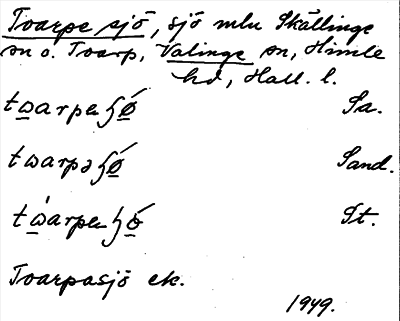 Toarpe sjö, sjö mlu Skällinge
sn o. Toarp, Valinge sn, Himle
hd, Hall. l.
twarpaɧǿ Sa.
twarpəɧǿ Sand.
twarpaɧǿ St.
Toarpasjö ek.
1949.